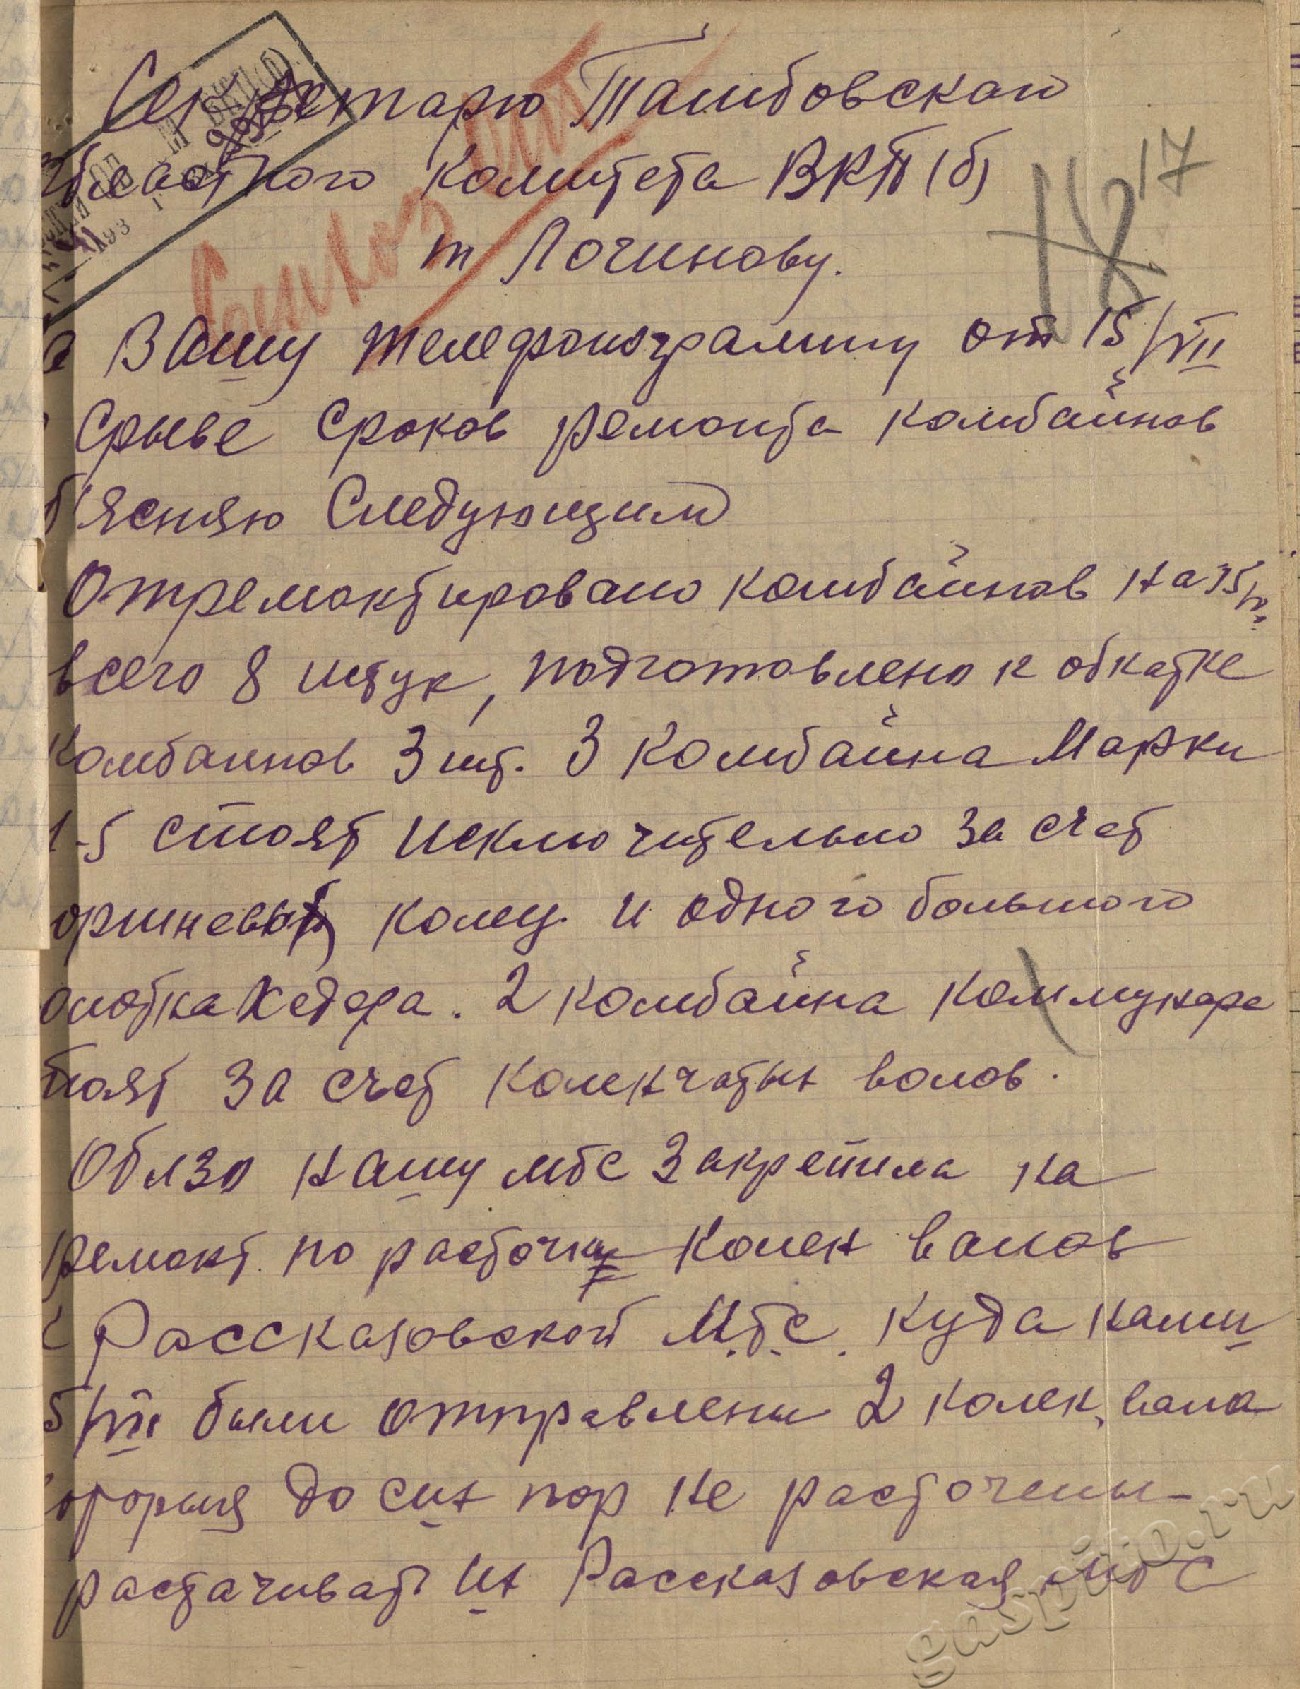 Секретарю Тамбовскаго
бластного комитета ВКП(б)
т Логинову.
17
Вашу телефонограмму от 15/VII
срыве сроков ремонта комбайнов
б'ясняю следующим
Отремонтировано комбайнов на 15/VII
всего 8 штук, подготовлено к обкатке
комбаинов 3 шт. 3 комбайна марки
1-5 стоят исключительно за счет
оршневых колец и одного большого
олотка Хедера. 2 комбайна коммунара
тоят за счет коленчатых волов.
Облзо нашу мтс закрепила на
ремонт по расточки колен валов
Рассказовской М.т.с. куда нами
5/VII были отправлены 2 колен, вала
оторыя до сих пор не расточены-
растачивать их Рассказовская мтс
gaspito.ru